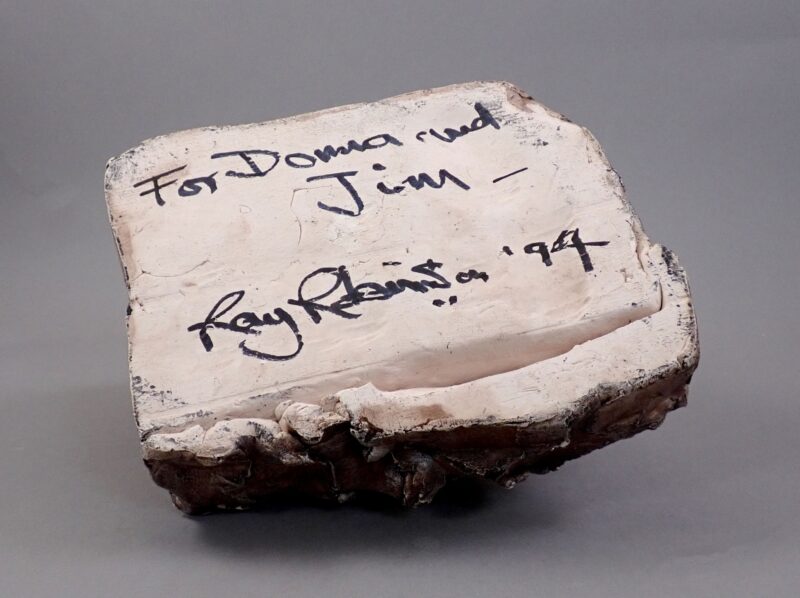 For Donna and
Jim –
Ray Robinson '94